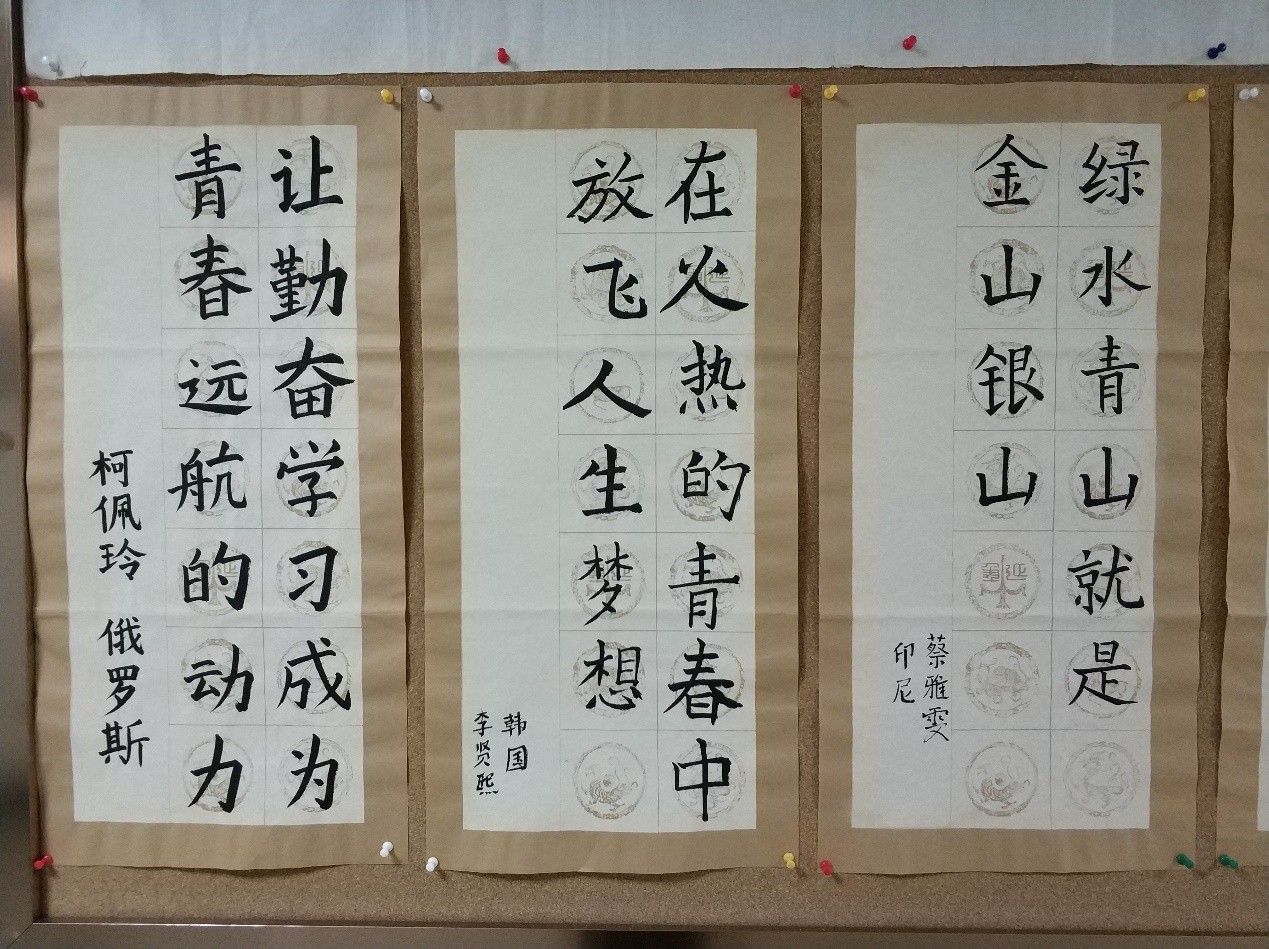 让勤奋学习成为
青春远航的动力
柯佩玲 俄罗斯
在火热的青春中
放飞人生梦想
韩国
李贤熙
绿水青山就是
金山银山
蔡雅雯
印尼